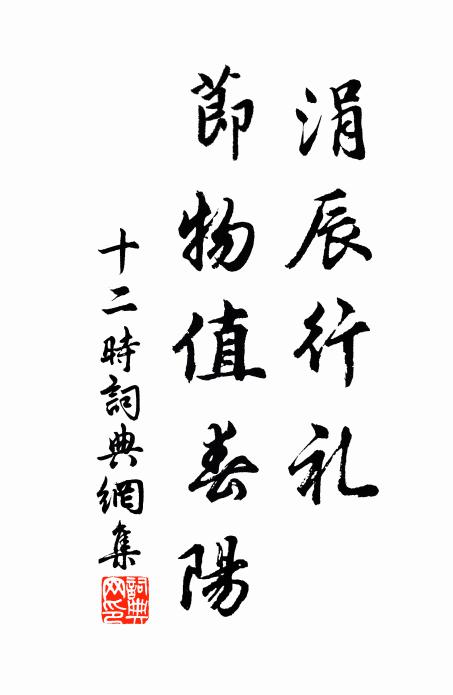 涓辰行礼
節物值春陽
十二時詞典網集
詞典網印